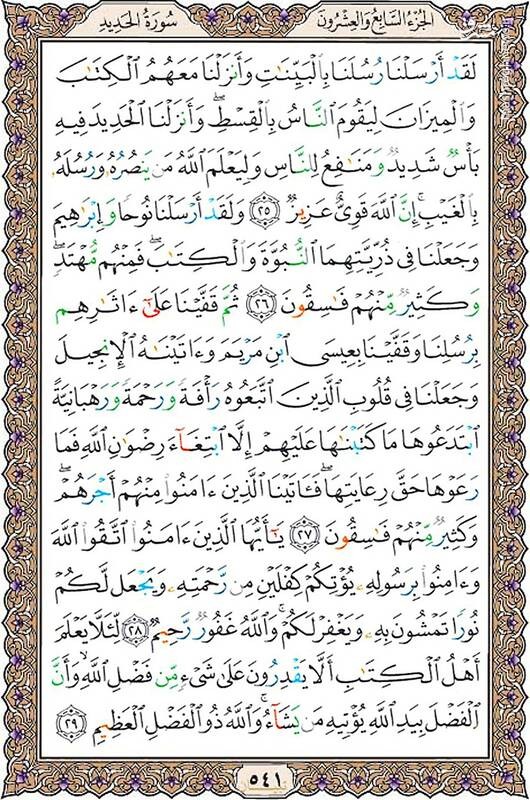 الجزء السابع والعشرون
سورة الحديد
لَقَدْ أَرْسَلْنَا رُسُلَنَا بِالْبَيِّنَاتِ وَأَنزَلْنَا مَعَهُمُ الْكِتَٰبَ
وَالْمِيزَانَ لِيَقُومَ النَّاسُ بِالْقِسْطِ ۖ وَأَنزَلْنَا الْحَدِيدَ فِيهِ
بَأْسٌ شَدِيدٌ وَمَنَٰفِعُ لِلنَّاسِ وَلِيَعْلَمَ اللَّهُ مَن يَنصُرُهُۥ وَرُسُلَهُۥ
بِالْغَيْبِ ۚ إِنَّ اللَّهَ قَوِىٌّ عَزِيزٌ ﴿٢٥﴾ وَلَقَدْ أَرْسَلْنَا نُوحًا وَإِبْرَٰهِيمَ
وَجَعَلْنَا فِى ذُرِّيَّتِهِمَا النُّبُوَّةَ وَالْكِتَٰبَ ۖ فَمِنْهُم مُّهْتَدٍ ۖ
وَكَثِيرٌ مِّنْهُمْ فَٰسِقُونَ ﴿٢٦﴾ ثُمَّ قَفَّيْنَا عَلَىٰٓ ءَاثَٰرِهِم
بِرُسُلِنَا وَقَفَّيْنَا بِعِيسَى ابْنِ مَرْيَمَ وَءَاتَيْنَٰهُ الْإِنجِيلَ
وَجَعَلْنَا فِى قُلُوبِ الَّذِينَ اتَّبَعُوهُ رَأْفَةً وَرَحْمَةً وَرَهْبَانِيَّةً
ابْتَدَعُوهَا مَا كَتَبْنَٰهَا عَلَيْهِمْ إِلَّا ابْتِغَآءَ رِضْوَٰنِ اللَّهِ فَمَا
رَعَوْهَا حَقَّ رِعَايَتِهَا ۖ فَـَٔاتَيْنَا الَّذِينَ ءَامَنُوا مِنْهُمْ أَجْرَهُمْ ۖ
وَكَثِيرٌ مِّنْهُمْ فَٰسِقُونَ ﴿٢٧﴾ يَٰٓأَيُّهَا الَّذِينَ ءَامَنُوا اتَّقُوا اللَّهَ
وَءَامِنُوا بِرَسُولِهِۦ يُؤْتِكُمْ كِفْلَيْنِ مِن رَّحْمَتِهِۦ وَيَجْعَل لَّكُمْ
نُورًا تَمْشُونَ بِهِۦ وَيَغْفِرْ لَكُمْ ۚ وَاللَّهُ غَفُورٌ رَّحِيمٌ ﴿٢٨﴾ لِّئَلَّا يَعْلَمَ
أَهْلُ الْكِتَٰبِ أَلَّا يَقْدِرُونَ عَلَىٰ شَىْءٍ مِّن فَضْلِ اللَّهِ ۙ وَأَنَّ
الْفَضْلَ بِيَدِ اللَّهِ يُؤْتِيهِ مَن يَشَآءُ ۚ وَاللَّهُ ذُو الْفَضْلِ الْعَظِيمِ ﴿٢٩﴾
٥٤١